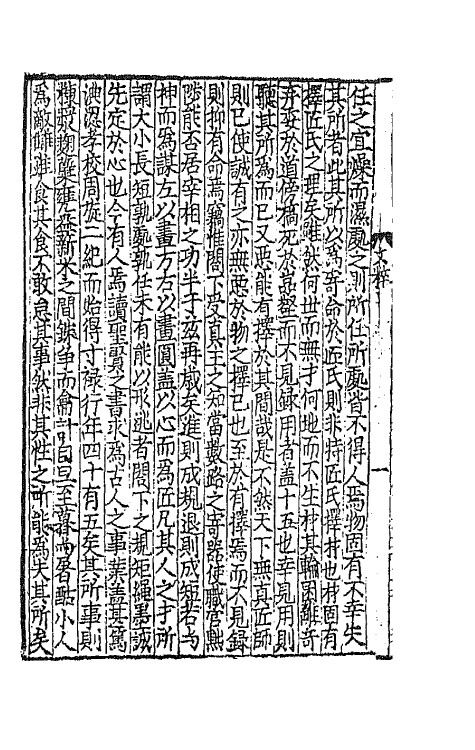 任之宜燥而濕處之則所任所處皆不得人焉物固有不幸失
其所者此其所以爲寄命於匠氏則非特匠氏擇材也材固有
擇匠氏之理矣雖然何世而無才何地而不生材其輪囷離奇
弃委於道傍槁死於嵓壑而不見錄用者蓋十五也幸見用則
聽其所爲而已又惡能有擇於其間哉是不然天下無真匠師
則已使誠有之亦無要於物之擇已也至於有擇焉而不見錄
則抑有命焉竊惟閤下受真主之知當數路之寄踣使職官勲
隙能否居宰相之功半于茲再歲矣進則成規退則成矩若与
神而爲謀左以畫方右以畫圓蓋以心而爲匠凡其人之才所
謂大小長短孰處孰任未有能以形逃者閤下之規矩繩墨誠
先定於心也今有人焉讀聖賢之書求爲古人之事業蓋甚篤
淟涊孝校周旋二紀而始得寸祿行年四十有五矣其所事則
穅粰麴糵甕盎薪水之間銖爭而龠計自旦至暮而屠酤小人
爲敵讎雖食其食不敢怠其事然非其性之所能爲夫其所矣
文粹
一